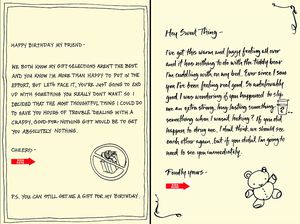 HAPPY BIRTHDAY MY FRIEND -
WE BOTH KNOW MY GIFT SELECTIONS AREN'T THE BEST
AND YOU KNOW I'M MORE THAN HAPPY TO PUT IN THE
EFFORT, BUT LET'S FACE IT, YOU'RE JUST GOING TO END
UP WITH SOMETHING YOU REALLY DON'T WANT! SO I
DECIDED THAT THE MOST THOUGHTFUL THING I COULD DO
TO SAVE YOU HOURS OF TROUBLE DEALING WITH A
CRAPPY, GOOD-FOR-NOTHING GIFT WOULD BE TO GET
YOU ABSOLUTELY NOTHING.
CHEERS -
P.S. YOU CAN STILL GET ME A GIFT FOR MY BIRTHDAY.
Hey Sweet Thing -
I've got this warm and fuzzy feeling all over
and it has nothing to do with the teddy bear
I'm cuddling with on my bed. Ever since I saw
you I've been feeling real good. So unbelievably
good, I was wondering if you happened to slip
me an extra strong, long lasting something
something when I wasn't looking? If you did
happen to drug me, I don't think we should see
each other again, but if you didn't, I'm going to
need to see you immediately.
Fondly yours -